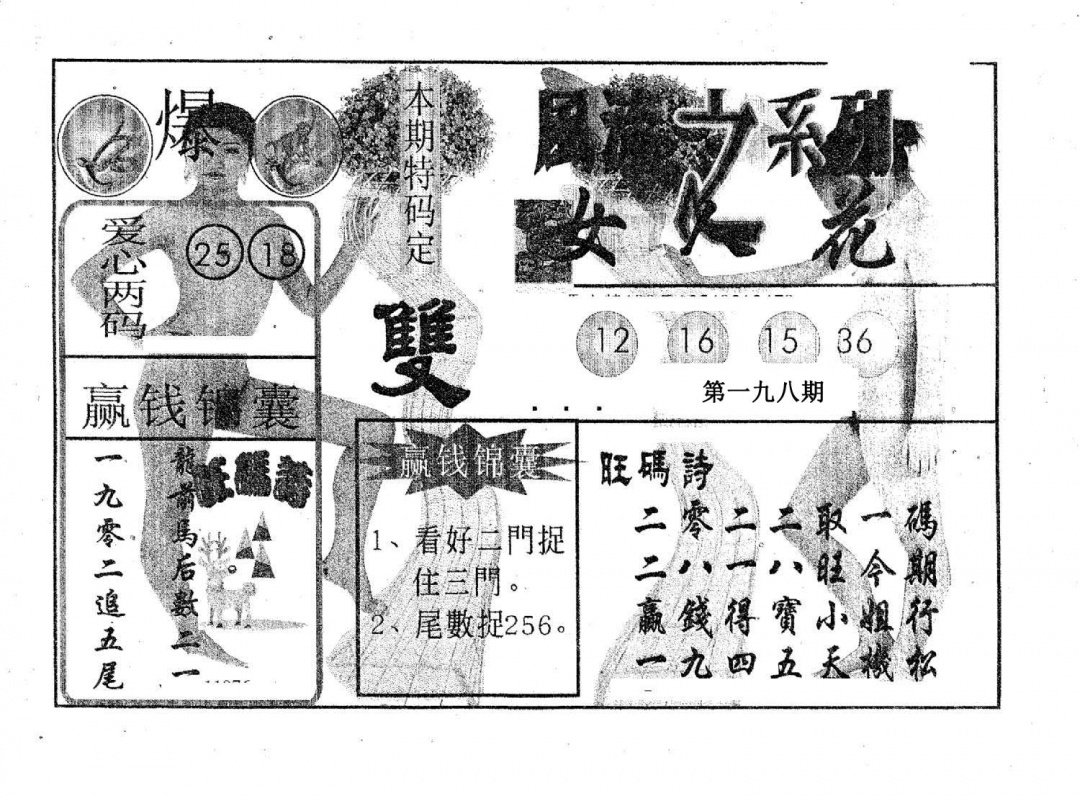 爆
爱心两码
25 18
赢钱锦囊
龍前馬后數二一
一九零二追五尾
本期特码定
雙
系列
女人花
12 16 15 36
第一九八期
赢钱锦囊
1、看好二門捉
住三門。
2、尾數捉256。
旺碼詩
二零二二取一碼
二八一八旺今期
赢錢得寶小姐行
一九四五天機松